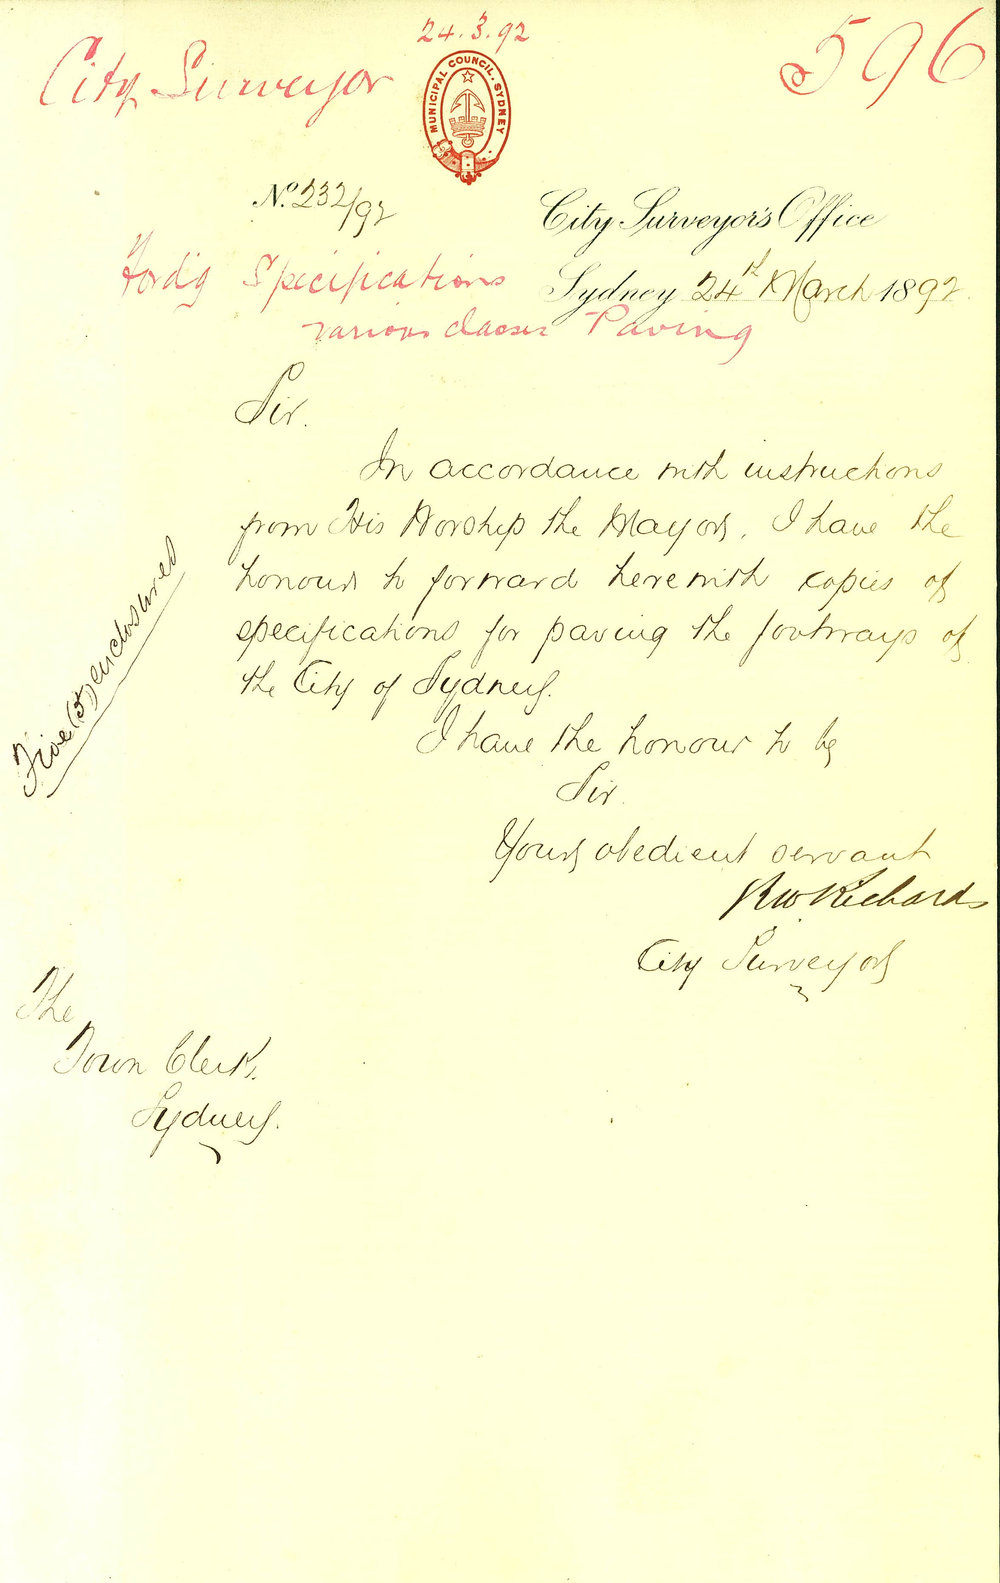 24.3.92
596
City Surveyor
MUNICIPAL COUNCIL. SYDNEY
No. 232/92
City Surveyor's Office
Ford'g Specifications
Sydney 24th March 1892
various classes Paving
Sir.
In accordance with instructions
from His Worship the Mayor, I have the
honour to forward herewith copies of
specifications for paving the footways of
the City of Sydney.
Five (5) enclosures
I have the honour to be
Sir.
Your obedient servant
RW Richards
City Surveyor
The
Town Clerk,
Sydney.